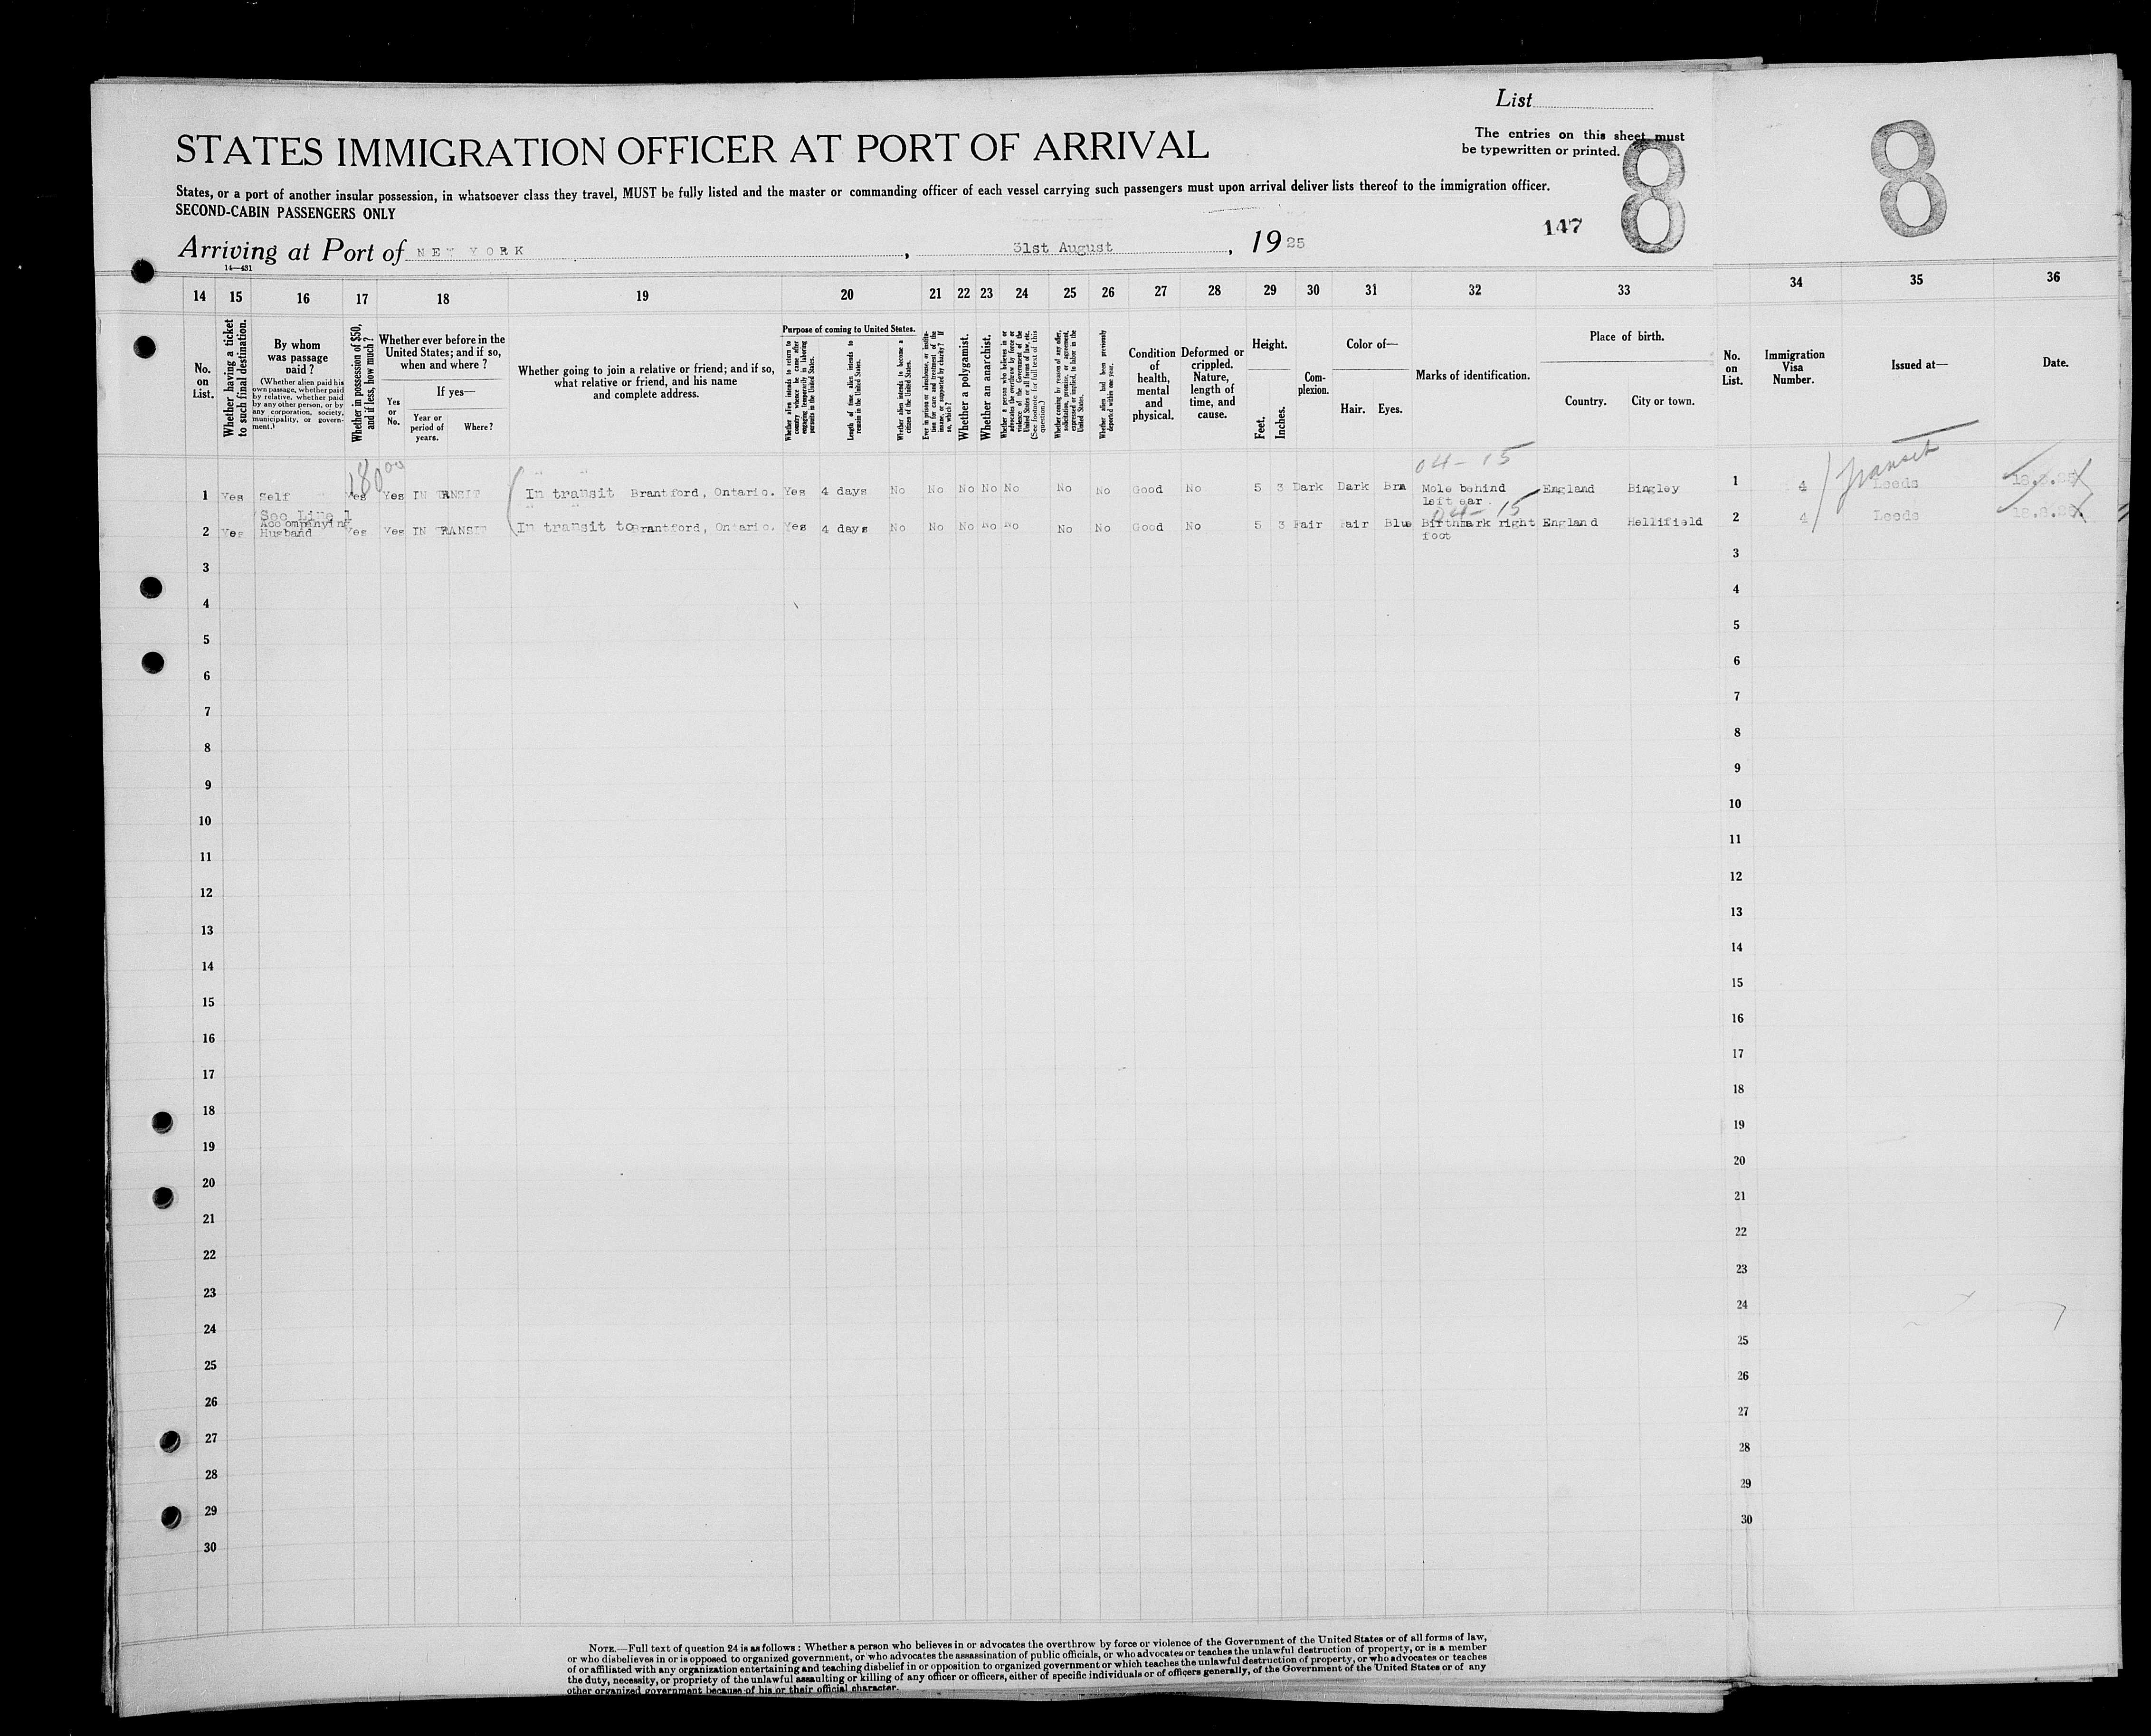 List
The entries on this sheet must
be typewritten or printed.
8
8
STATES IMMIGRATION OFFICER AT PORT OF ARRIVAL
States, or a port of another insular possession, in whatsoever class they travel, MUST be fully listed and the master or commanding officer of each vessel carrying such passengers must upon arrival deliver lists thereof to the immigration officer.
SECOND-CABIN PASSENGERS ONLY
147
Arriving at Port of NEW YORK, 31st August, 1925
14—431
14 15 16 17 18 19 20 21 22 23 24 25 26 27 28 29 30 31 32 33 34 35 36
No. on List.
Whether having a ticket to such final destination.
By whom was passage paid?
(Whether alien paid his own passage, whether paid by relative, whether paid by any other person, or by any corporation, society, municipality, or government.)
Whether in possession of $50, and if less, how much?
Whether ever before in the United States; and if so, when and where?
Yes or No.
If yes—
Year or period of years.
Where?
Whether going to join a relative or friend; and if so, what relative or friend, and his name and complete address.
Purpose of coming to United States.
Whether alien intends to return to country whence he came after engaging temporarily in laboring pursuits in the United States.
Length of time alien intends to remain in the United States.
Whether alien intends to become a citizen of the United States.
Ever in prison or almshouse, or institution for care and treatment of the insane, or supported by charity? If so, which?
Whether a polygamist.
Whether an anarchist.
Whether a person who believes in or advocates the overthrow by force or violence of the Government of the United States or all forms of law, etc. (See footnote for full text of this question.)
Whether coming by reason of any offer, solicitation, promise, or agreement, expressed or implied, to labor in the United States.
Whether alien had been previously deported within one year.
Condition of health, mental and physical.
Deformed or crippled. Nature, length of time, and cause.
Height.
Feet.
Inches.
Complexion.
Color of—
Hair.
Eyes.
Marks of identification.
Place of birth.
Country.
City or town.
No. on List.
Immigration Visa Number.
Issued at—
Date.
180 00
04-15
Transit
1 Yes Self Yes Yes IN TRANSIT In transit Brantford, Ontario. Yes 4 days No No No No No No No Good No 5 3 Dark Dark Brn Mole behind England Bingley 1 4 Leeds 18.8.25
left ear
See Line 1
04-15
Accompanying
2 Yes Husband Yes Yes IN TRANSIT In transit to Brantford, Ontario. Yes 4 days No No No No No No No Good No 5 3 Fair Fair Blue Birthmark right England Hellifield 2 4 Leeds 18.8.25
foot
3 3
4 4
5 5
6 6
7 7
8 8
9 9
10 10
11 11
12 12
13 13
14 14
15 15
16 16
17 17
18 18
19 19
20 20
21 21
22 22
23 23
24 24
25 25
26 26
27 27
28 28
29 29
30 30
NOTE.—Full text of question 24 is as follows: Whether a person who believes in or advocates the overthrow by force or violence of the Government of the United States or of all forms of law,
or who disbelieves in or is opposed to organized government, or who advocates the assassination of public officials, or who advocates or teaches the unlawful destruction of property, or is a member
of or affiliated with any organization entertaining and teaching disbelief in or opposition to organized government or which teaches the unlawful destruction of property, or who advocates or teaches
the duty, necessity, or propriety of the unlawful assaulting or killing of any officer or officers, either of specific individuals or of officers generally, of the Government of the United States or of any
other organized government because of his or their official character.